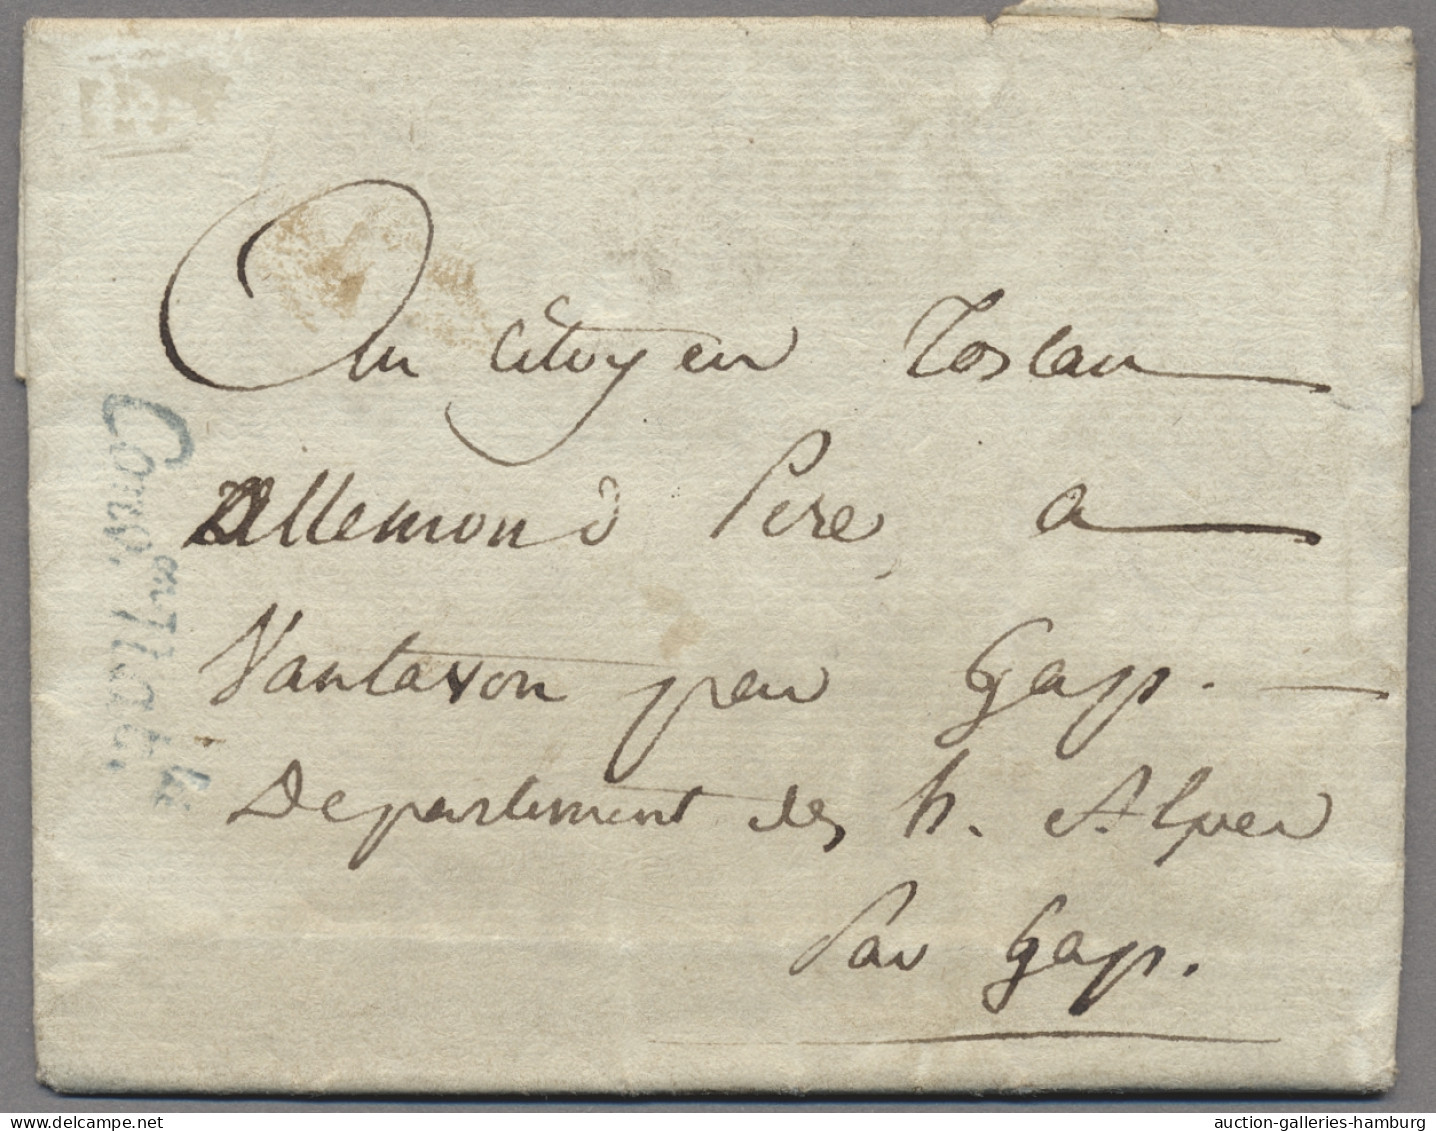 Au Citoyen Toslan
Allemand Pere a
Vantavon par Gap.
Departement des h. Alpes
Par Gap.
en Italie
auction-galleries-hamburg